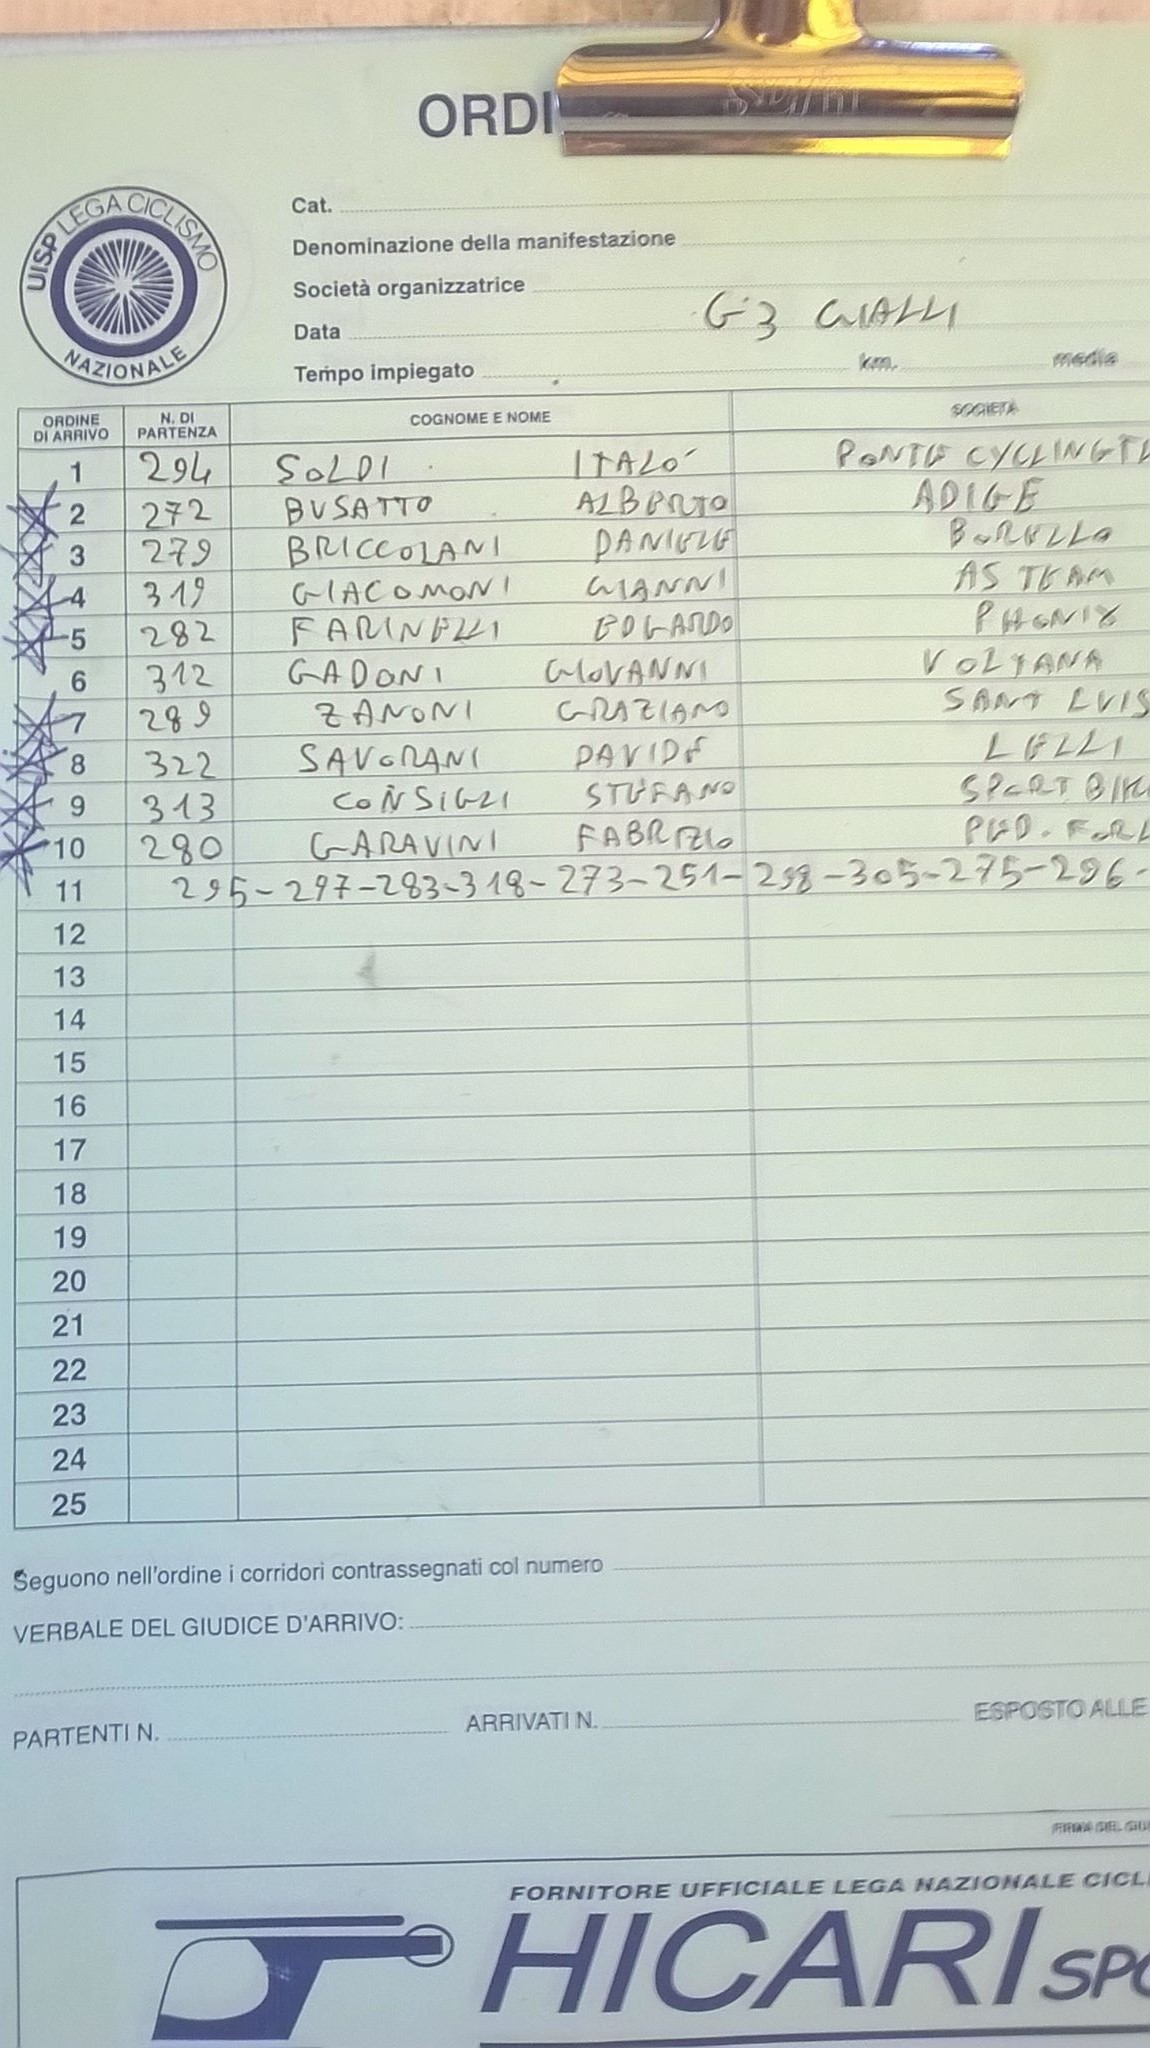 ORDI
UISP LEGA CICLISMO
NAZIONALE
Cat.
Denominazione della manifestazione
Società organizzatrice
Data
G3 GIALLI
Tempo impiegato km. media
ORDINE DI ARRIVO N. DI PARTENZA COGNOME E NOME SOCIETÀ
1 294 SOLDI ITALO PONTE CYCLINGTE
2 272 BUSATTO ALBERTO ADIGE
3 279 BRICCOLANI DANIELE BORELLO
4 319 GIACOMONI GIANNI AS TEAM
5 282 FARINELLI EDGARDO PHONIX
6 312 GADONI GIOVANNI VOLTANA
7 289 ZANONI GRAZIANO SANT LUIS
8 322 SAVORANI DAVIDE LELLI
9 313 CONSIGLI STEFANO SPORT BIKE
10 280 GARAVINI FABRIZIO PED. FORL
11 295-297-283-318-273-251-298-305-275-296-
12
13
14
15
16
17
18
19
20
21
22
23
24
25
Seguono nell'ordine i corridori contrassegnati col numero
VERBALE DEL GIUDICE D'ARRIVO:
PARTENTI N. ARRIVATI N. ESPOSTO ALLE
FIRMA DEL GIU
FORNITORE UFFICIALE LEGA NAZIONALE CICLI
HICARI SPO